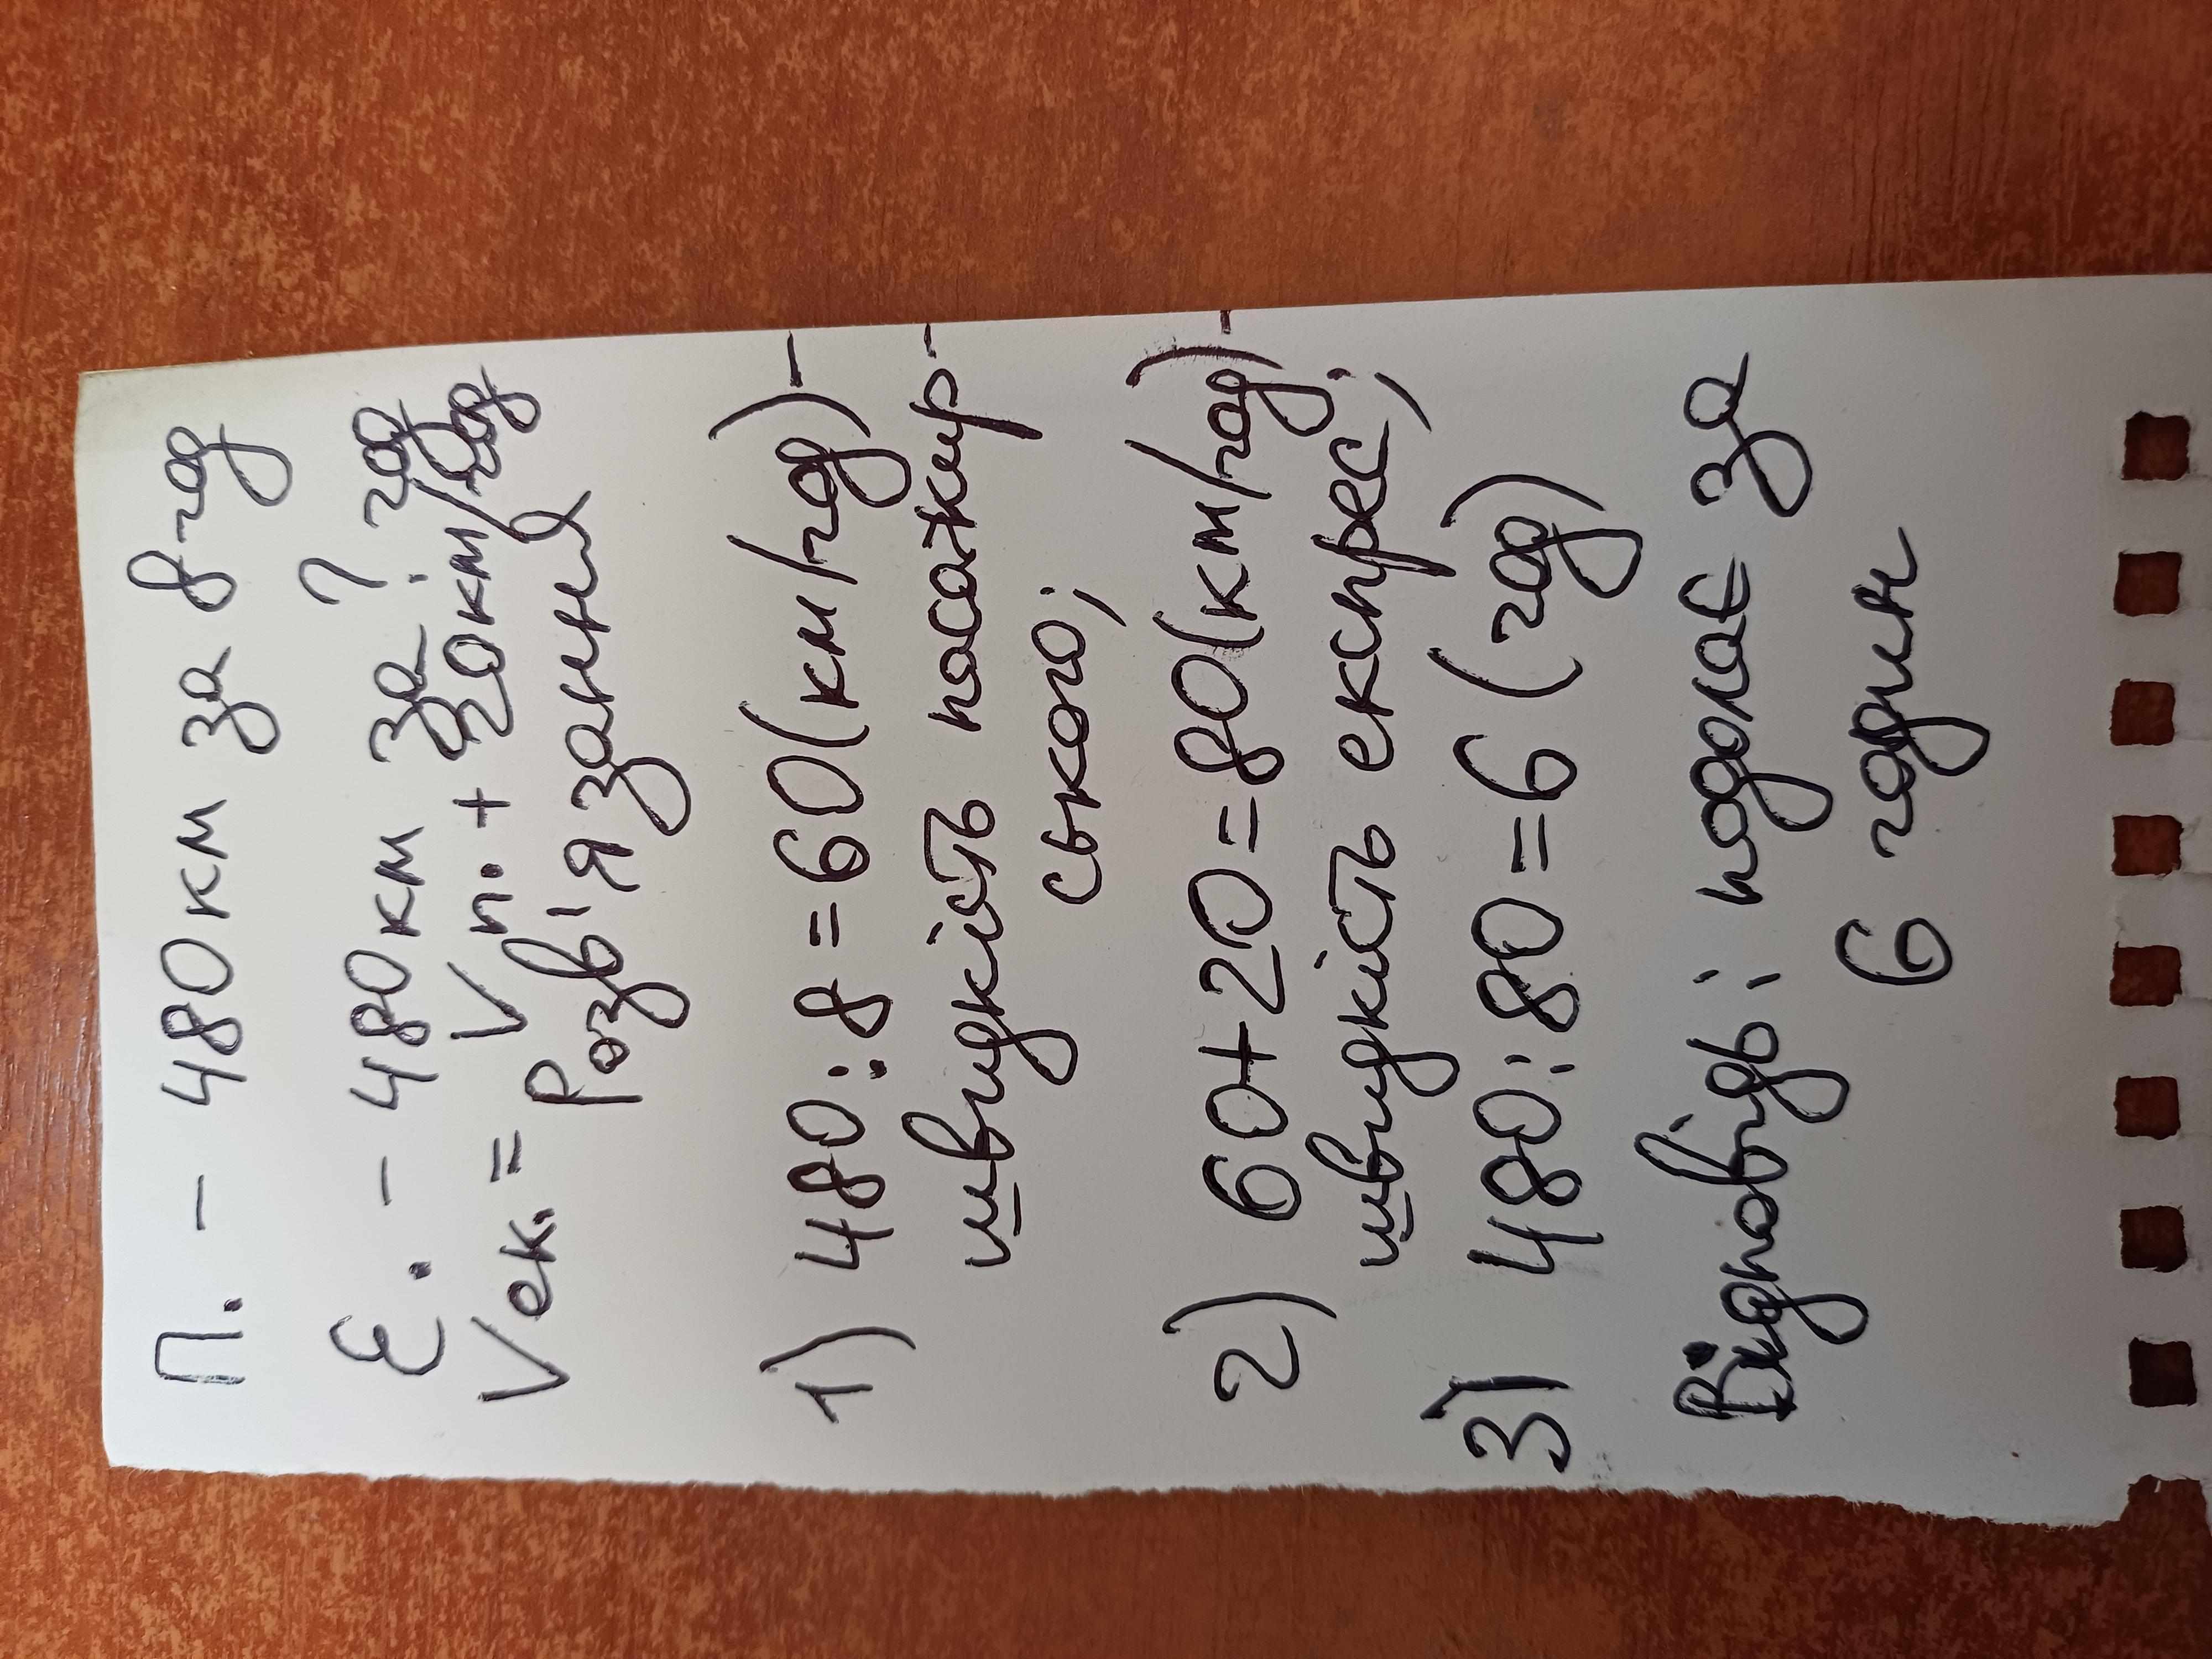 П. - 480 км за 8 год
Є. - 480 км за ? год
Vек. = Vп. + 20 км/год
Розв'язання
1) 480 : 8 = 60 (км/год) -
швидкість пасажир-
ського;
2) 60 + 20 = 80 (км/год) -
швидкість експрес;
3) 480 : 80 = 6 (год)
Відповідь: подолає за
6 годин